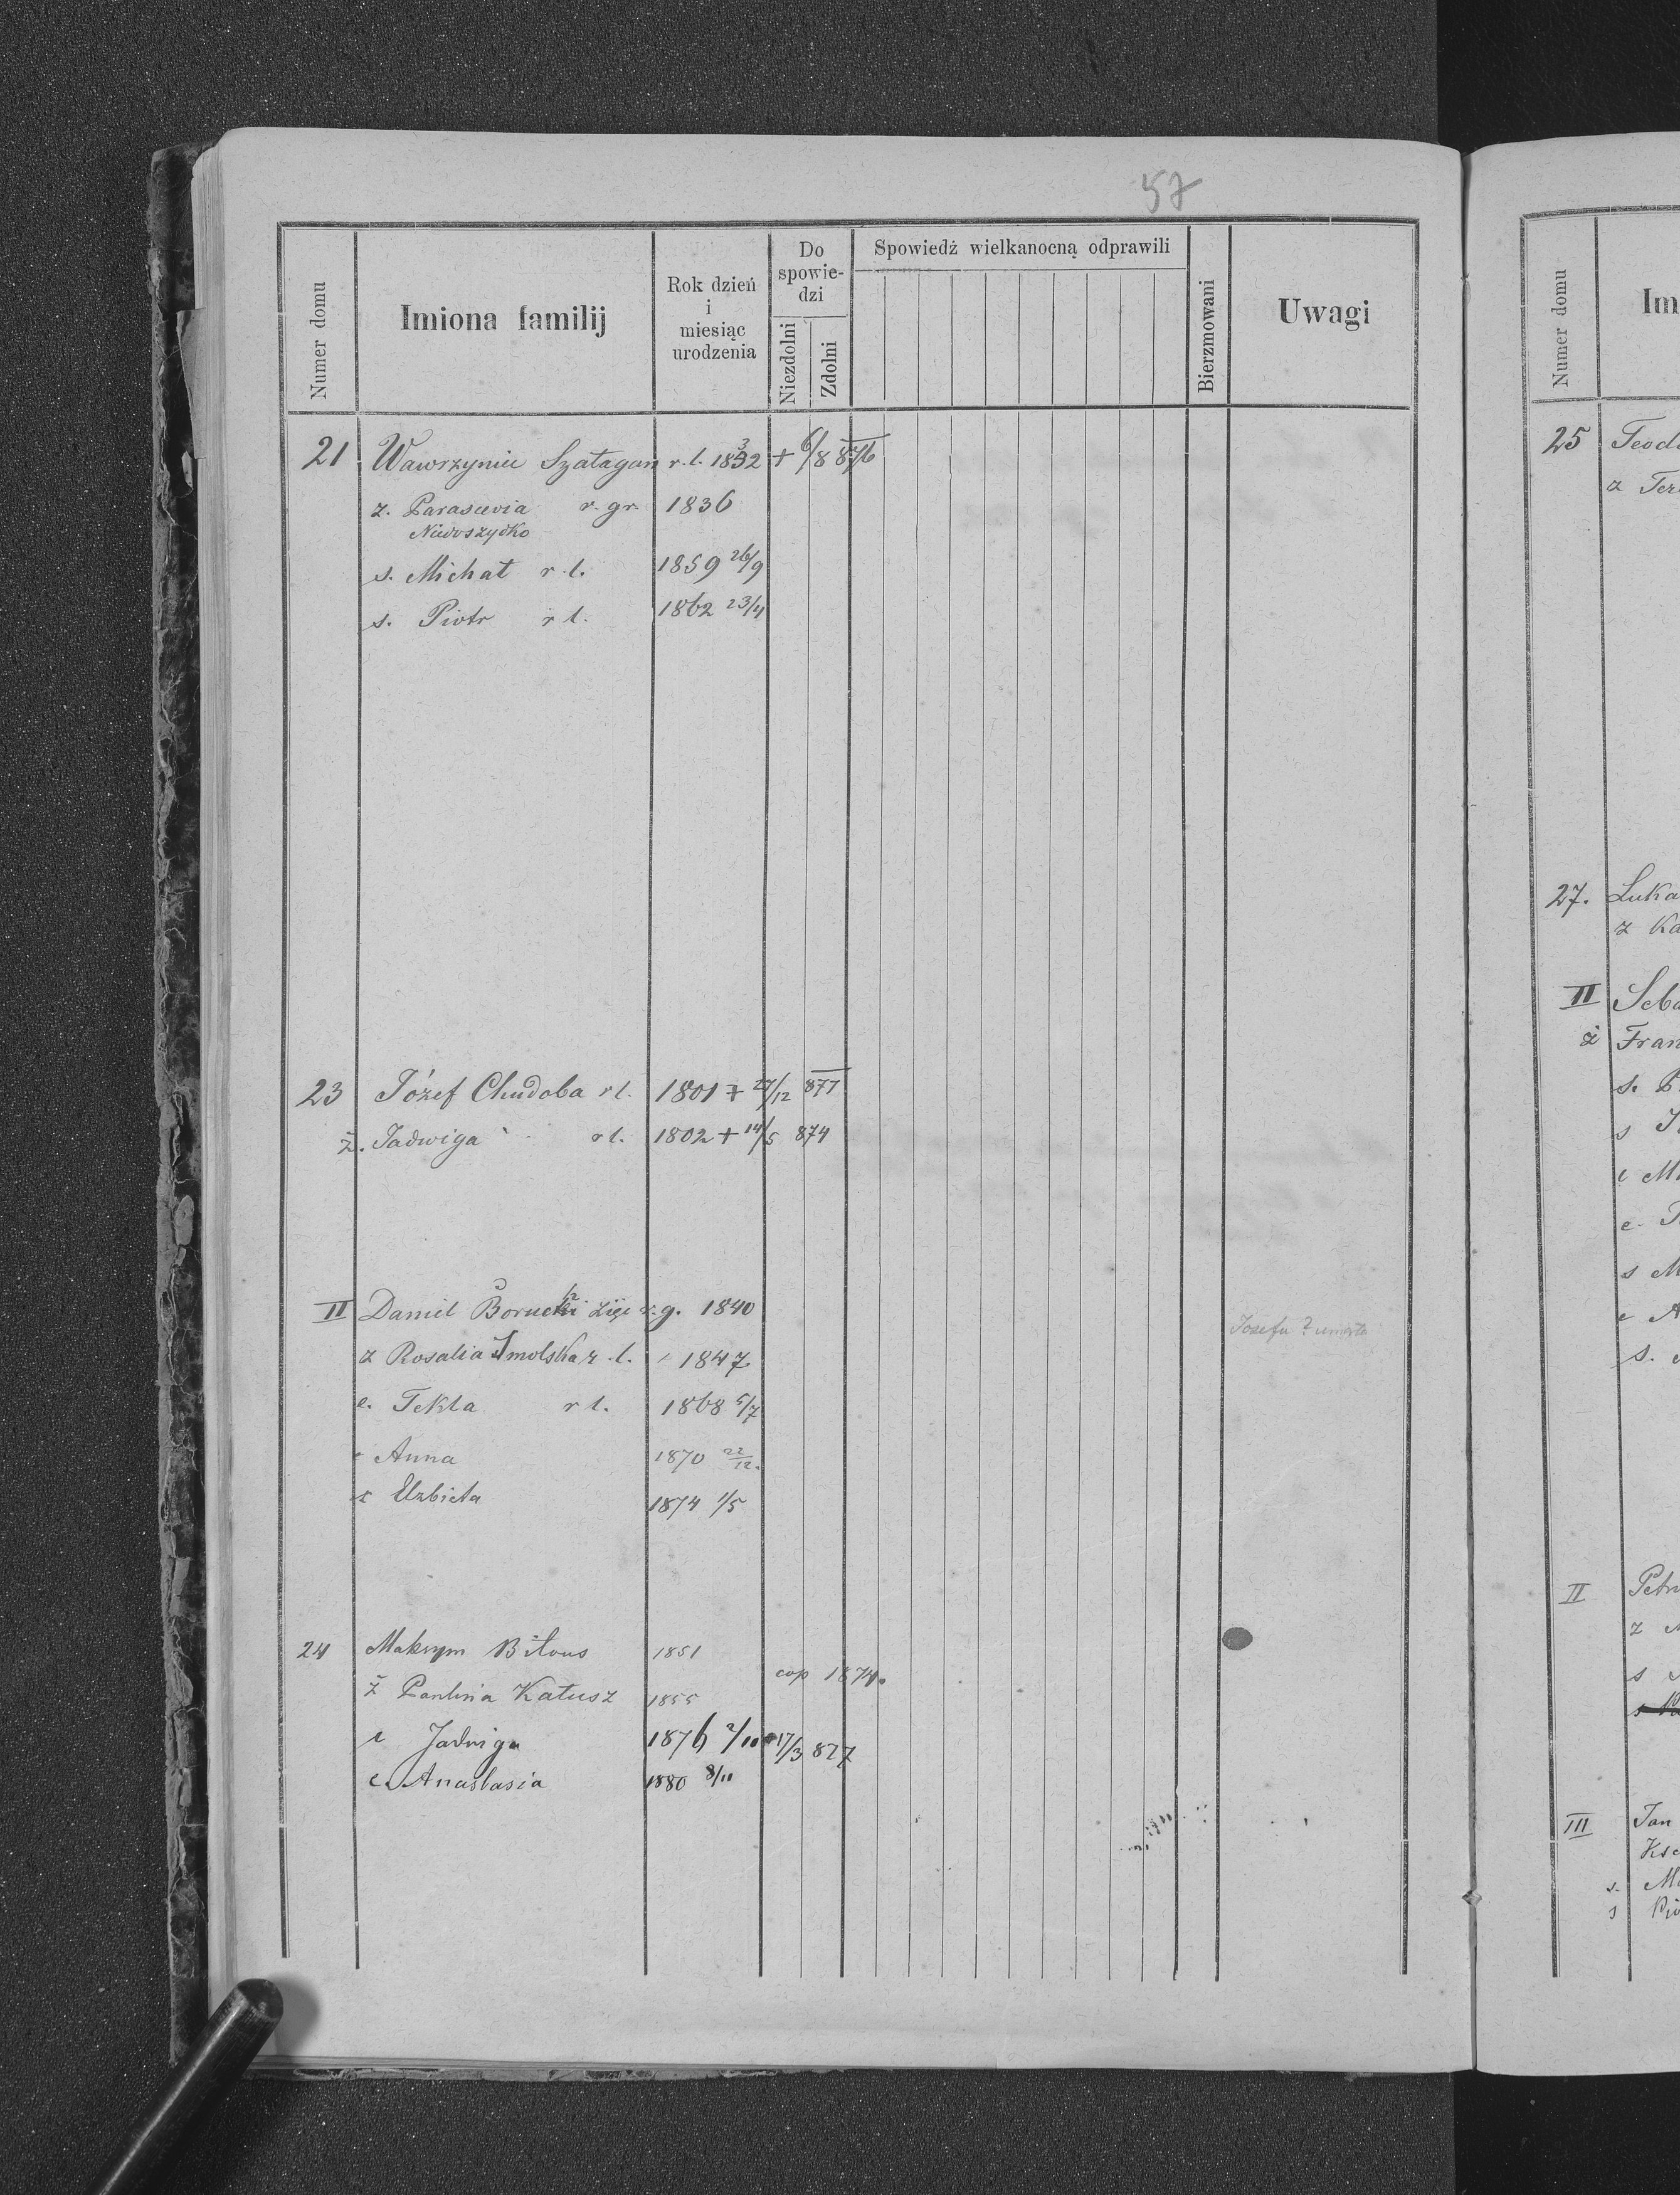 57
Numer domu
Imiona familij
Rok dzień i miesiąc urodzenia
Do spowie-dzi
Niezdolni
Zdolni
Spowiedź wielkanocną odprawili
Bierzmowani
Uwagi
21 Wawrzyniec Szałagan r. l. 1832 + 6/8 876
ż. Parascevia r. gr. 1836
Niedoszydko
s. Michał r. l. 1859 26/9
s. Piotr r l. 1862 23/4
23 Józef Chudoba r l. 1801 + 27/12 877
ż. Jadwiga r l. 1802 + 14/5 874
II Daniel Borucki r. g. 1840
Józefu ? umarła
z Rosalia Smolska r. l. 1847
c. Tekla r l. 1868 5/7
Anna 1870 22/12.
c Elzbieta 1874 1/5
24 Maksym Biłous 1851
cop 1874.
ż Paulina Katusz 1855
c Jadwiga 1876 2/10 17/3 877
c. Anastasia 1880 8/11
Numer domu
Im
25 Teod
z Ter
27. Luka
z Ka
II Seba
ż Fran
II Petr
III Jan